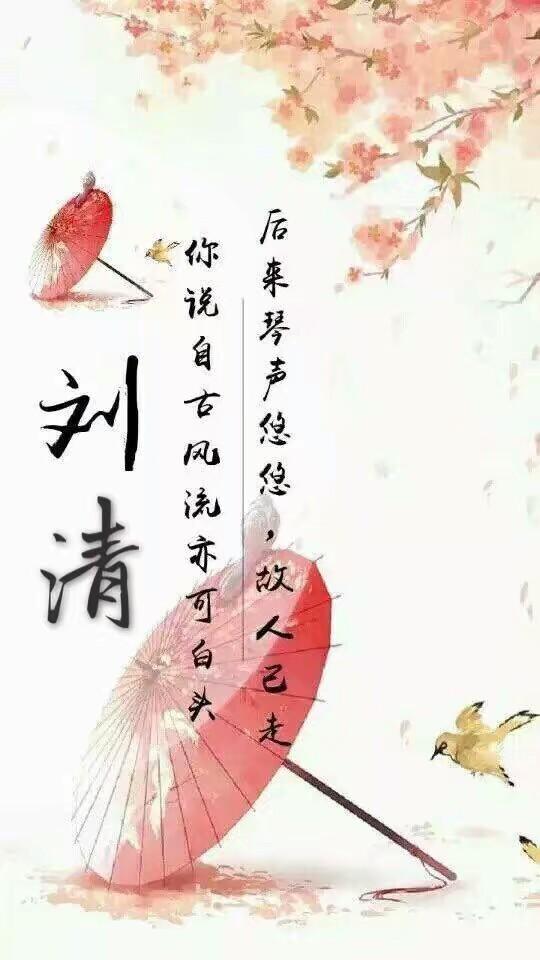 后来琴声悠悠，故人已走
你说自古风流亦可白头
刘清